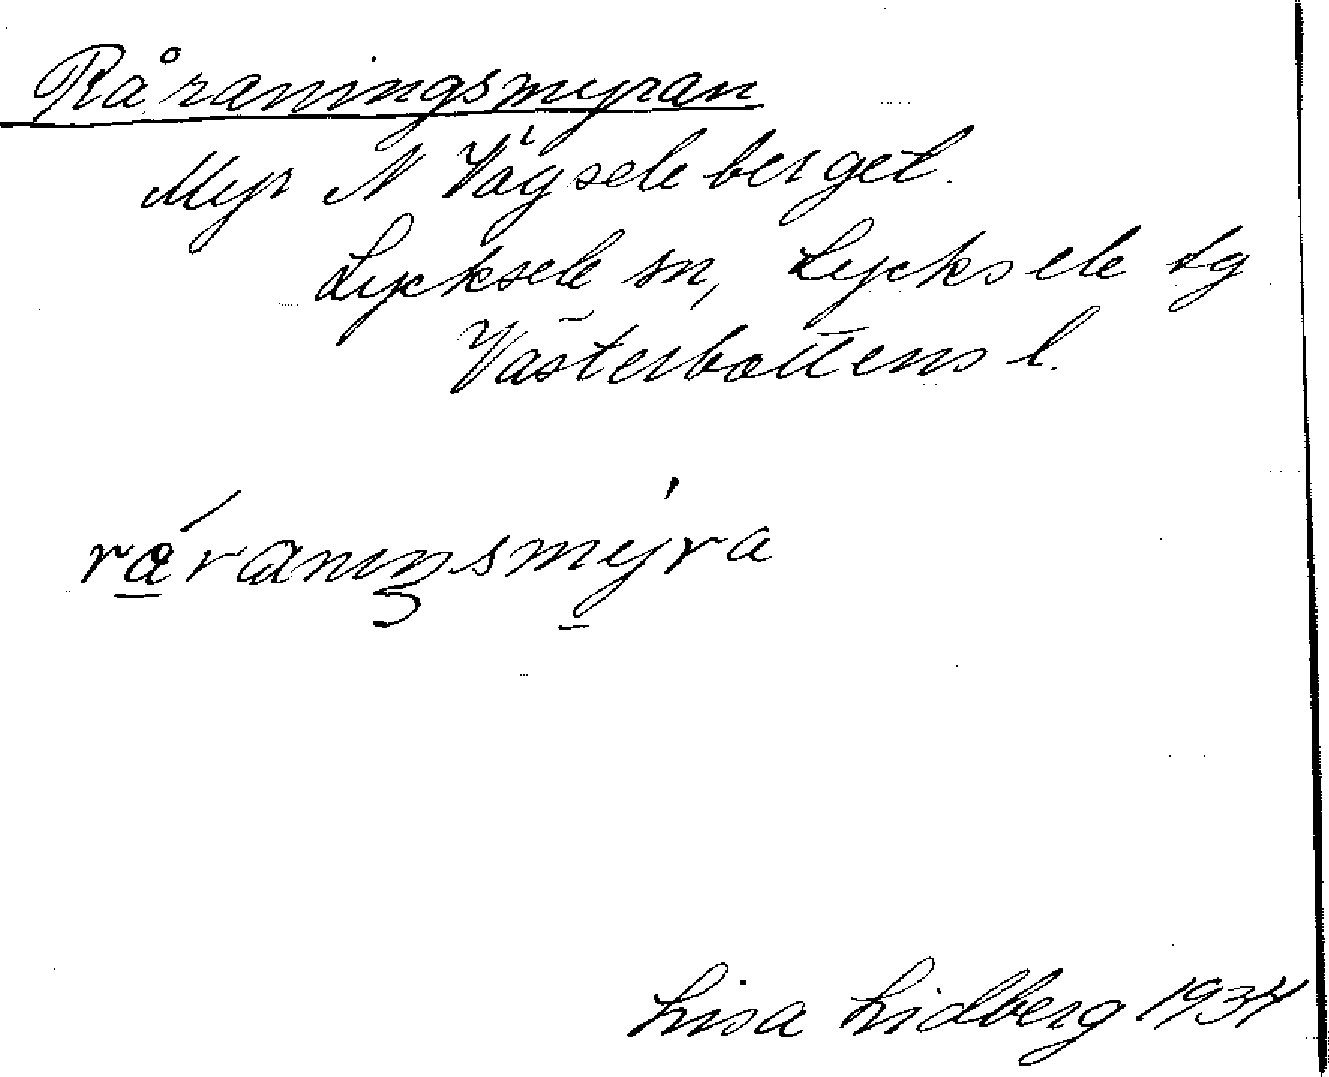 Råraningsmyran
Myr N Vägseleberget.
Lycksele sn, Lycksele lg
Västerbottens l.
råranıŋsmyra
Lisa Lidberg 1934